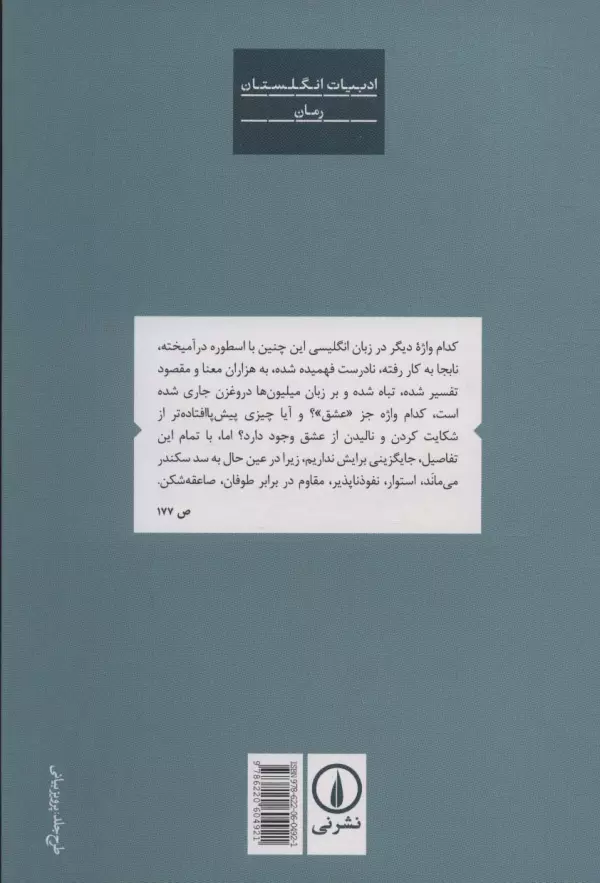 ادبیات انگلستان
رمان
کدام واژهٔ دیگر در زبان انگلیسی این چنین با اسطوره درآمیخته،
نابجا به کار رفته، نادرست فهمیده شده، به هزاران معنا و مقصود
تفسیر شده، تباه شده و بر زبان میلیون‌ها دروغزن جاری شده
است، کدام واژه جز «عشق»؟ و آیا چیزی پیش‌پاافتاده‌تر از
شکایت کردن و نالیدن از عشق وجود دارد؟ اما، با تمام این
تفاصیل، جایگزینی برایش نداریم، زیرا در عین حال به سد سکندر
می‌مانَد، استوار، نفوذناپذیر، مقاوم در برابر طوفان، صاعقه‌شکن.
ص ۱۷۷
طرح جلد: پرویز بیانی
ISBN: 978-622-06-0492-1
9786220604921
نشرنی